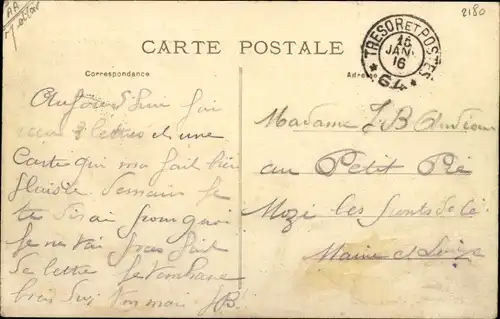 2180
CARTE POSTALE
TRESOR ET POSTES
16
JAN
16
* 64 *
Correspondance
Adresse
Aujourd'hui j'ai
lettres et une
Carte qui ma fait bien
plaisir demain je
te dirai pourquoi
je ne tai pas fait
de lettre je tembrasse
bien JB
Madame J B
au Petit Pé
Mozé les ponts de cé
Maine et Loire